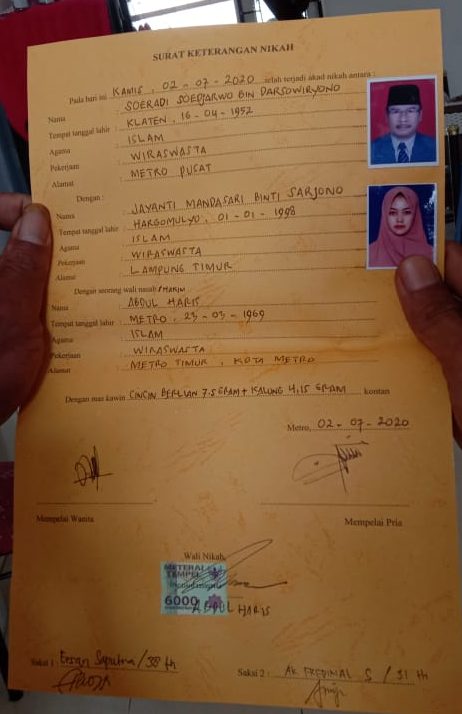 SURAT KETERANGAN NIKAH
Pada hari ini KAMIS, 02 - 07 - 2020 telah terjadi akad nikah antara :
Nama : SOERADI SOEDJARWO BIN DARSOWIRYONO
Tempat tanggal lahir : KLATEN, 16 - 04 - 1952
Agama : ISLAM
Pekerjaan : WIRASWASTA
Alamat : METRO PUSAT
Dengan :
Nama : JAYANTI MANDASARI BINTI SARJONO
Tempat tanggal lahir : HARGOMULYO, 01 - 01 - 1998
Agama : ISLAM
Pekerjaan : WIRASWASTA
Alamat : LAMPUNG TIMUR
Dengan seorang wali nasab/HAKIM
Nama : ABDUL HARIS
Tempat tanggal lahir : METRO, 23 - 03 - 1969
Agama : ISLAM
Pekerjaan : WIRASWASTA
Alamat : METRO TIMUR, KOTA METRO
Dengan mas kawin CINCIN BERLIAN 7.5 GRAM + KALUNG 4,15 GRAM kontan
Metro, 02 - 07 - 2020
Mempelai Wanita
Mempelai Pria
Wali Nikah,
METERAI
TEMPEL
6000
ABDUL HARIS
Saksi 1 : Saputra / 38 th
Saksi 2 : S / 31 th